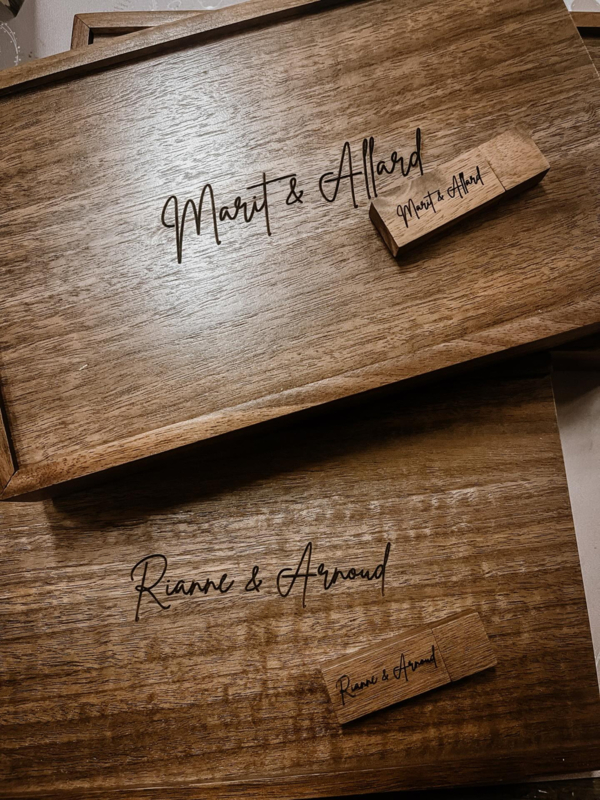 Marit & Allard
Marit & Allard
Rianne & Arnoud
Rianne & Arnoud